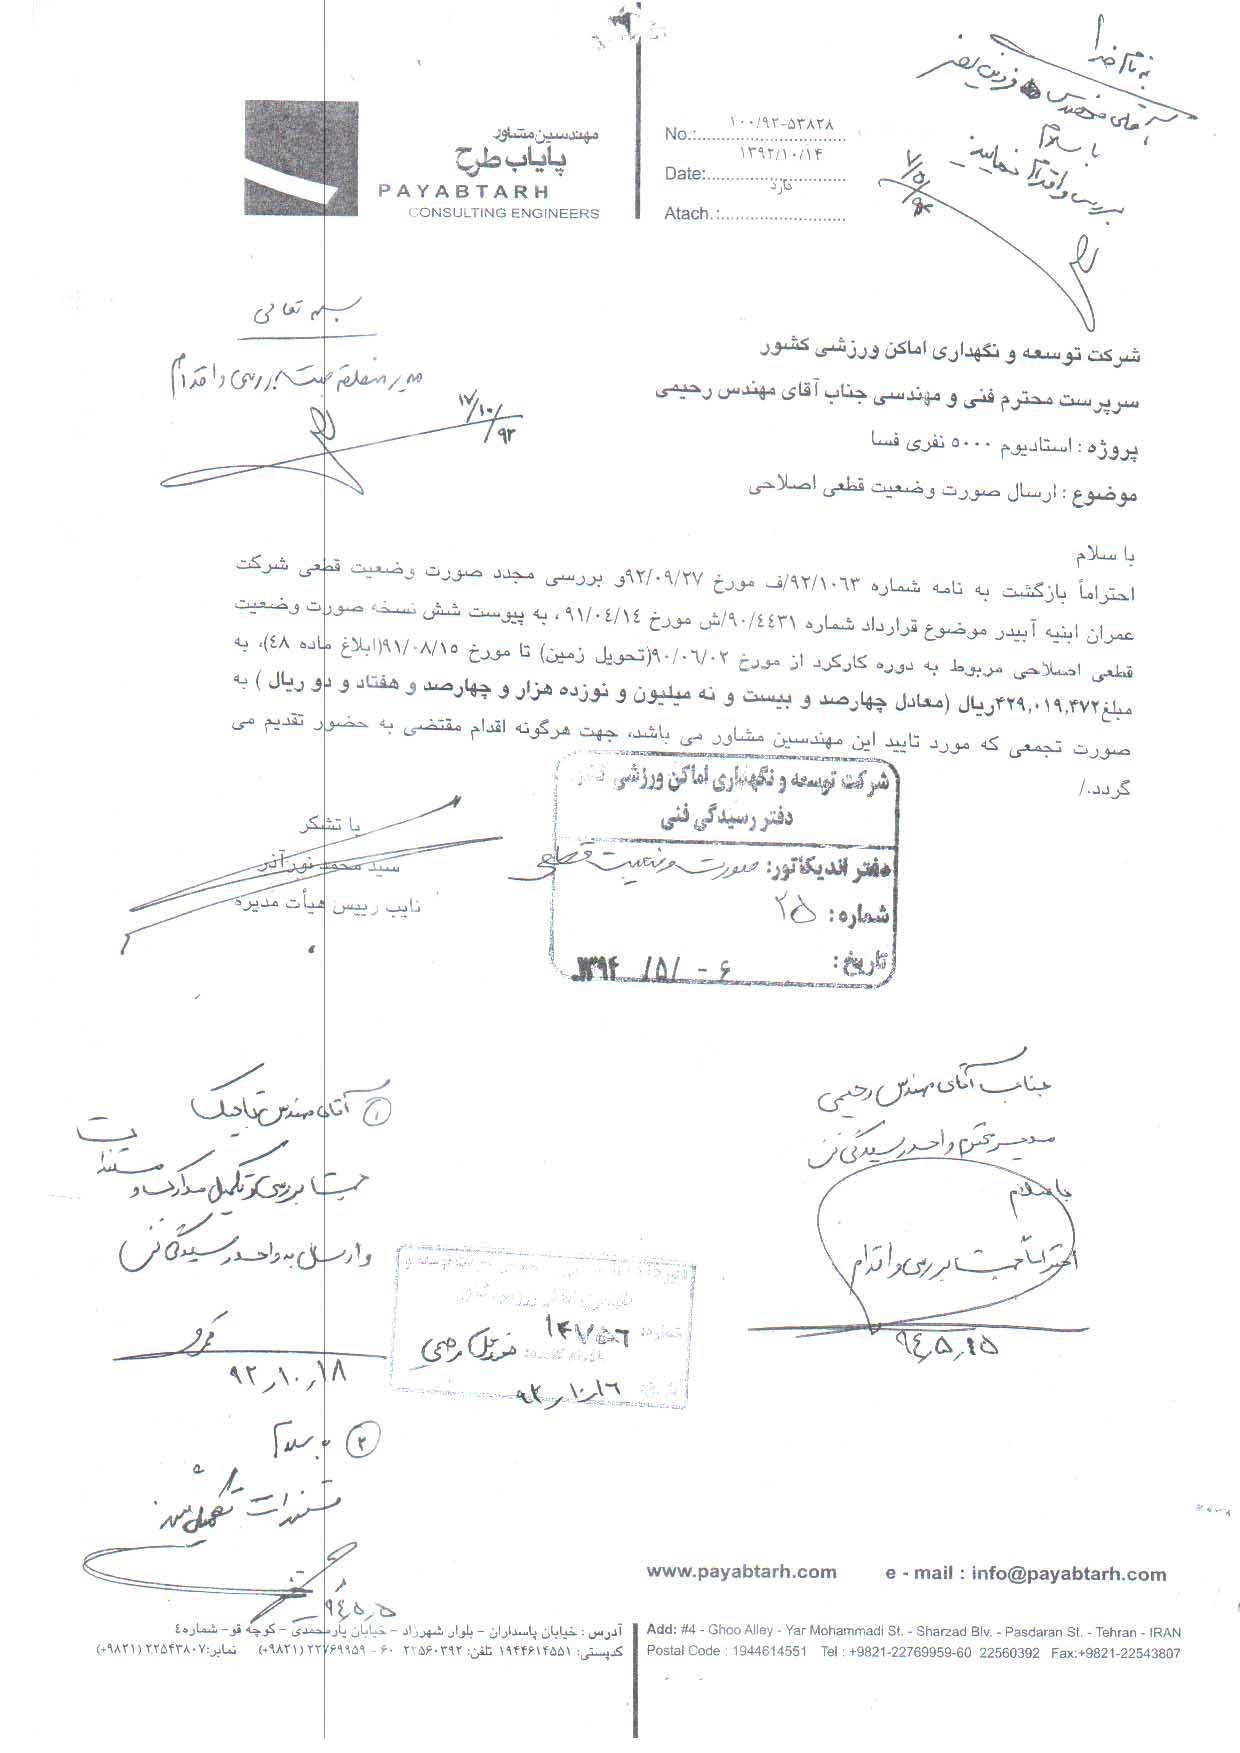 مهندسین مشاور
پایاب طرح
PAYABTARH
CONSULTING ENGINEERS
No.: ۱۰۰/۹۲-۵۳۸۲۸
Date: ۱۳۹۲/۱۰/۱۴
Atach.: دارد
به نام خدا
آقای مهندس
با سلام
بررسی و اقدام نمایید
بسمه تعالی
مدیر منطقه جهت بررسی و اقدام
۹۲/۱۰/۱۷
شرکت توسعه و نگهداری اماکن ورزشی کشور
سرپرست محترم فنی و مهندسی جناب آقای مهندس رحیمی
پروژه : استادیوم ۵۰۰۰ نفری فسا
موضوع : ارسال صورت وضعیت قطعی اصلاحی
با سلام
احتراماً بازگشت به نامه شماره ۹۲/۱۰۶۳/ف مورخ ۹۲/۰۹/۲۷و بررسی مجدد صورت وضعیت قطعی شرکت
عمران ابنیه آبیدر موضوع قرارداد شماره ۹۰/۴۴۳۱/ش مورخ ۹۱/۰۴/۱۴ ، به پیوست شش نسخه صورت وضعیت
قطعی اصلاحی مربوط به دوره کارکرد از مورخ ۹۰/۰۶/۰۲(تحویل زمین) تا مورخ ۹۱/۰۸/۱۵(ابلاغ ماده ۴۸)، به
مبلغ۴۲۹,۰۱۹,۴۷۲ریال (معادل چهارصد و بیست و نه میلیون و نوزده هزار و چهارصد و هفتاد و دو ریال ) به
صورت تجمعی که مورد تایید این مهندسین مشاور می باشد، جهت هرگونه اقدام مقتضی به حضور تقدیم می
گردد./
با تشکر
سید محمد نورآذر
نایب رییس هیأت مدیره
شرکت توسعه و نگهداری اماکن ورزشی کشور
دفتر رسیدگی فنی
دفتر اندیکاتور: صورت وضعیت قطعی
شماره: ۲۵
تاریخ: ۶ - /۵/ ۱۳۹۴
جناب آقای مهندس رحیمی
مدیر محترم واحد رسیدگی فنی
با سلام
احتراماً جهت بررسی و اقدام
۱ آقای مهندس تاجیک
جهت بررسی و تکمیل مدارک و مستندات
و ارسال به واحد رسیدگی فنی
۹۲,۱۰,۱۸
شماره: ۱۴۷۵۶
۹۲,۱۰,۱۶
۲ با سلام
مستندات تکمیل شد
۹۴,۵,۵
www.payabtarh.com e - mail : info@payabtarh.com
آدرس : خیابان پاسداران - بلوار شهرزاد - خیابان یارمحمدی - کوچه قو- شماره۴
کدپستی: ۱۹۴۴۶۱۴۵۵۱ تلفن: ۲۲۵۶۰۳۹۲ ۶۰ - ۲۲۷۶۹۹۵۹ (۹۸۲۱+) نمابر:۲۲۵۴۳۸۰۷ (۹۸۲۱+)
Add: #4 - Ghoo Alley - Yar Mohammadi St. - Sharzad Blv. - Pasdaran St. - Tehran - IRAN
Postal Code : 1944614551 Tel : +9821-22769959-60 22560392 Fax:+9821-22543807